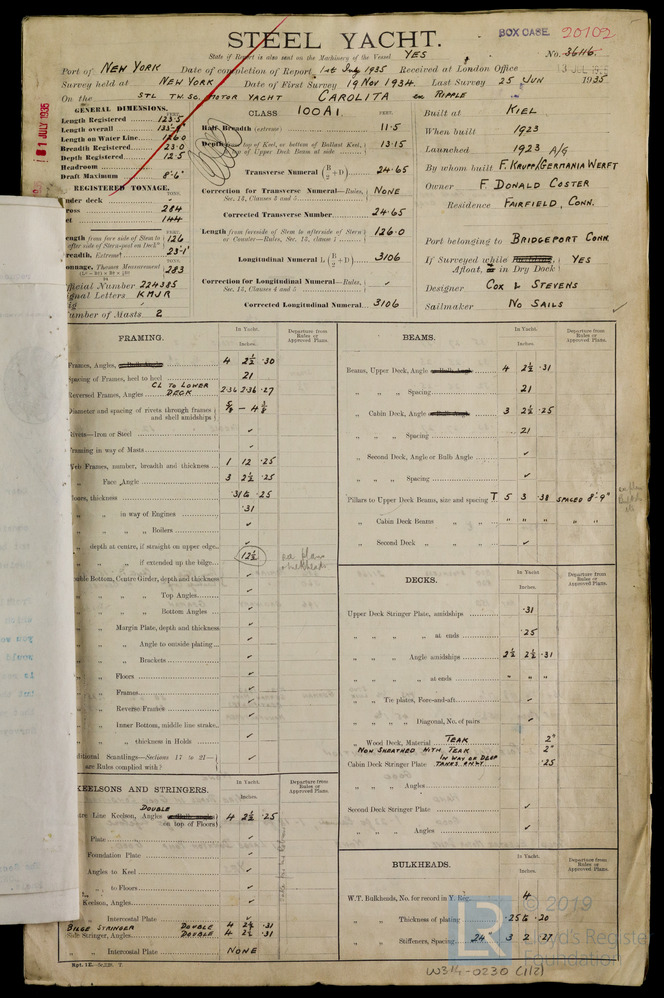 STEEL YACHT.
BOX CASE 20702
State if Report is also sent on the Machinery of the Vessel YES
No. 3646.
Port of NEW YORK Date of completion of Report 1st July 1935 Received at London Office 13 JUL 1935
Survey held at NEW YORK Date of First Survey 19 Nov 1934 Last Survey 25 JUN 1935
On the STL TW. SC. MOTOR YACHT CAROLITA ex RIPPLE
1 JULY 1935
GENERAL DIMENSIONS.
FEET.
Length Registered 123.5
Length overall
Length on Water Line 126.0
Breadth Registered 23.0
Depth Registered 12.5
Headroom
Draft Maximum 8'.6"
REGISTERED TONNAGE.
TONS.
nder deck
ross 284
et 144
ength from fore side of Stem to after side of Stern-post on Deck 126
readth, Extreme 23.1
onnage, Thames Measurement 283
fficial Number 224385
gnal Letters KMJR
ig
umber of Masts 2
CLASS 100A1.
FEET.
Half Breadth (extreme) 11.5
Depth from top of Keel, or bottom of Ballast Keel, to top of Upper Deck Beam at side 13.15
Transverse Numeral (B/2 + D) 24.65
Correction for Transverse Numeral—Rules, Sec. 13, Clauses 3 and 5 NONE
Corrected Transverse Number 24.65
Length from foreside of Stem to afterside of Stern or Counter—Rules, Sec. 13, clause 1 126.0
Longitudinal Numeral L (B/2 + D) 3106
Correction for Longitudinal Numeral—Rules, Sec. 13, Clauses 4 and 5
Corrected Longitudinal Numeral 3106
Built at KIEL
When built 1923
Launched 1923 A/G
By whom built F. KRUPP/GERMANIA WERFT
Owner F. DONALD COSTER
Residence FAIRFIELD, CONN.
Port belonging to BRIDGEPORT CONN
If Surveyed while Building, Afloat, or in Dry Dock YES
Designer COX & STEVENS
Sailmaker NO SAILS
FRAMING.
In Yacht.
Inches.
Departure from Rules or Approved Plans.
Frames, Angles, or Bulb Angles 4 2½ .30
Spacing of Frames, heel to heel 21
CL TO LOWER
Reversed Frames, Angles DECK 2.36 2.36 .27
Diameter and spacing of rivets through frames and shell amidships 5/8 - 4 3/8
Rivets—Iron or Steel
Framing in way of Masts
Web Frames, number, breadth and thickness 1 12 .25
" Face Angle 3 2½ .25
loors, thickness .31 to .25
" in way of Engines .31
" " Boilers
" depth at centre, if straight on upper edge
" " if extended up the bilge 12½
ouble Bottom, Centre Girder, depth and thickness
" " Top Angles
" " Bottom Angles
" Margin Plate, depth and thickness
" " Angle to outside plating
" " Brackets
" Floors
" Frames
" Reverse Frames
" Inner Bottom, middle line strake
" " thickness in Holds
ditional Scantlings—Sections 17 to 21—
are Rules complied with?
KEELSONS AND STRINGERS.
In Yacht.
Inches.
Departure from Rules or Approved Plans.
DOUBLE
tre Line Keelson, Angles or Bulb Angle on top of Floors 4 2½ .25
" Plate
" Foundation Plate
" Angles to Keel
" " to Floors
Keelson, Angles
" Intercostal Plate
BILGE STRINGER DOUBLE 4 2½ .31
Side Stringer, Angles DOUBLE 4 2½ .31
" " Intercostal Plate NONE
Rpt. 1E.
BEAMS.
In Yacht.
Inches.
Departure from Rules or Approved Plans.
Beams, Upper Deck, Angle or Bulb Angl 4 2½ .31
" " " Spacing 21
" Cabin Deck, Angle or Bulb Angl 3 2½ .25
" " " Spacing 21
" Second Deck, Angle or Bulb Angle
" " " Spacing
Pillars to Upper Deck Beams, size and spacing T 5 3 .38 SPACED 8'.9"
" Cabin Deck Beams " " " " "
" Second Deck "
DECKS.
In Yacht.
Inches.
Departure from Rules or Approved Plans.
Upper Deck Stringer Plate, amidships .31
" " " " at ends .25
" " " Angle amidships 2½ 2½ .31
" " " " at ends " " "
" " Tie plates, Fore-and-aft
" " " Diagonal, No. of pairs
" Wood Deck, Material TEAK 2"
NOW SHEATHED WITH TEAK 2"
IN WAY OF DEEP
Cabin Deck Stringer Plate TANKS ONLY .25
" " " Angles
Second Deck Stringer Plate
" " " Angles
BULKHEADS.
In Yacht.
Inches.
Departure from Rules or Approved Plans.
W.T. Bulkheads, No. for record in Y. Reg. 4
" " Thickness of plating .25 to .20
" " Stiffeners, Spacing 24 3 2 .27
LR
© 2019
Lloyd's Registe
Foundation
W314-0230 (1/2)